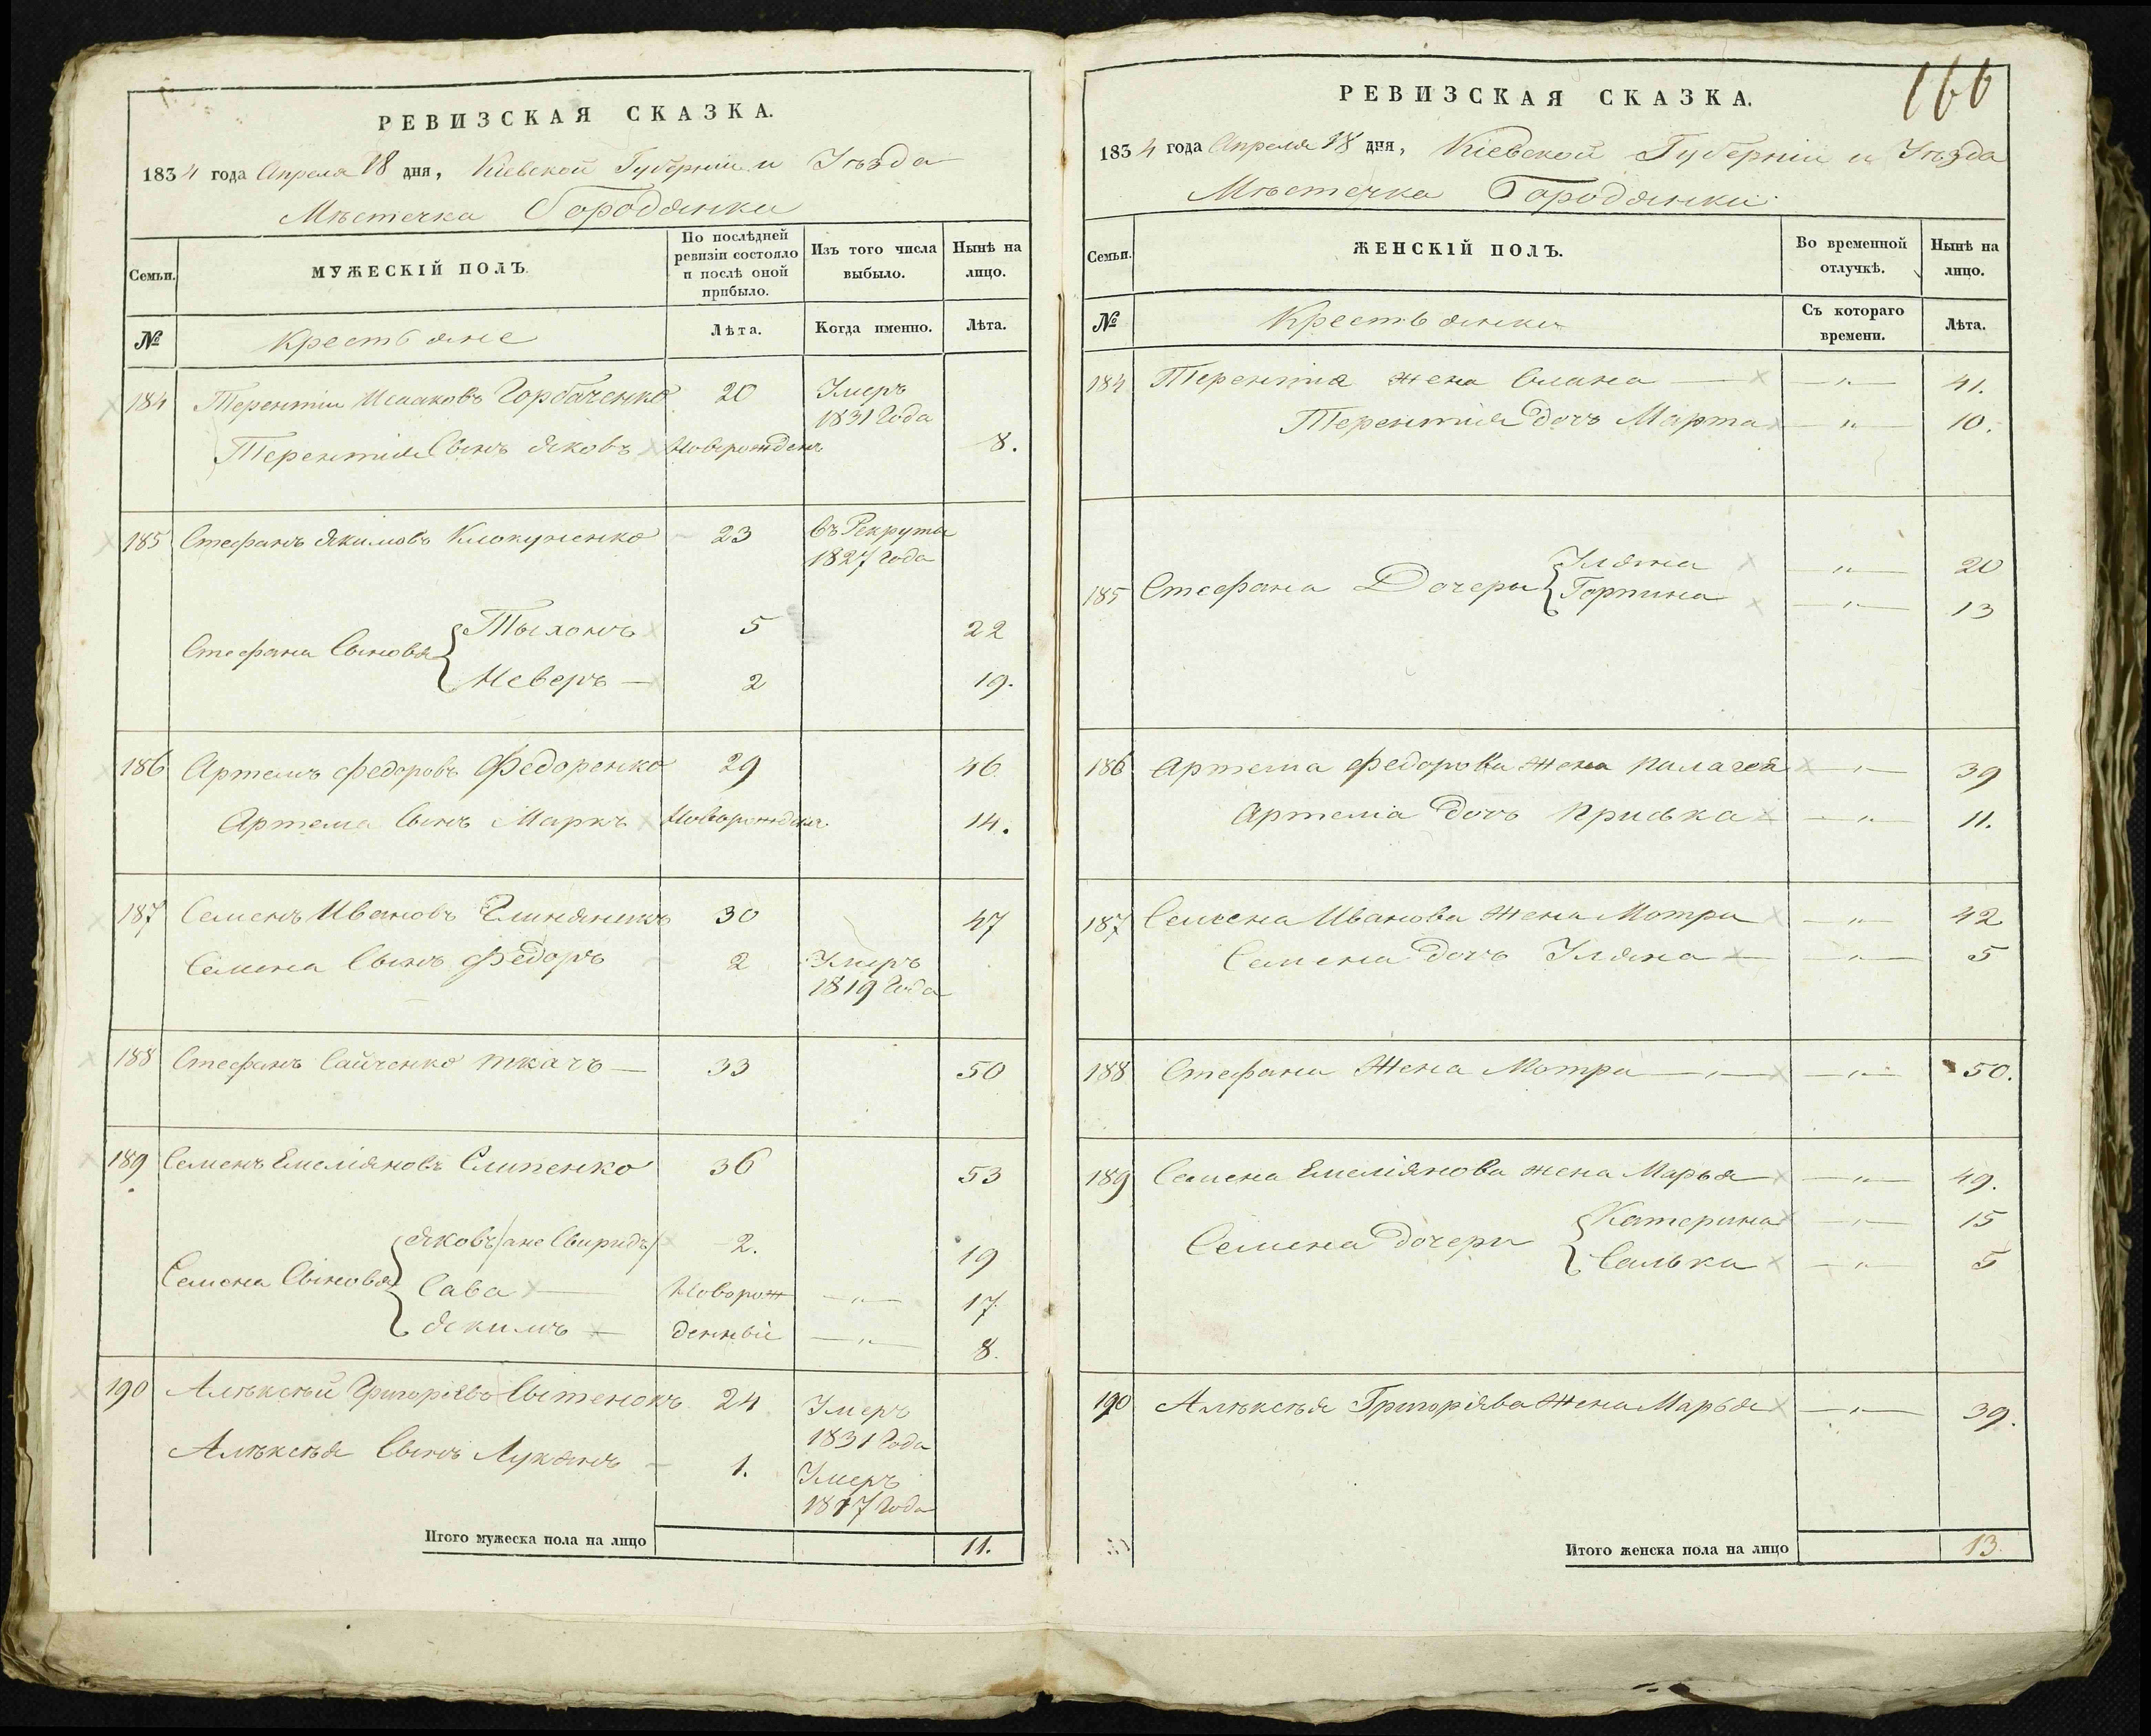 166
РЕВИЗСКАЯ СКАЗКА.
1834 года Апреля 18 дня, Кіевской Губерніи и Уѣзда
Мѣстечка Городянки
Семьи.
МУЖЕСКІЙ ПОЛЪ.
По послѣдней
ревизіи состояло
и послѣ оной
прибыло.
Изъ того числа
выбыло.
Нынѣ на
лицо.
№
Крестьяне
Лѣта.
Когда именно.
Лѣта.
184 Терентіи Исааковъ Горбаченко 20 Умеръ
1831 Года
Терентія Сынъ Яковъ Новорожденъ 8.
185 Стефанъ Якимовъ 23 въ Рекруты
1827 Года
Стефана Сыновья
Тыхонъ 5 22
Неверъ 2 19.
186 Артемъ Федоровъ Федоренко 29 46
Артема Сынъ Маркъ Новорожденъ 14.
187 Семенъ Ивановъ Глиняникъ 30 47
Семена Сынъ Федоръ 2 Умеръ
1819 Года
188 Стефанъ Сайченко ткачъ 33 50
189 Семенъ Емеліяновъ Слипенко 36 53
Семена Сыновья
Яковъ /ане Свиридъ/ 2. 19
Сава Новорож 17.
Якимъ денныи 8.
190 Алѣксѣй Григоріявъ Сытенокъ 24 Умеръ
1831 Года
Алѣксѣя Сынъ Лукянъ 1. Умеръ
1817 Года
Итого мужеска пола на лицо 11.
РЕВИЗСКАЯ СКАЗКА.
1834 года Апреля 18 дня, Кіевской Губерніи и Уѣзда
Мѣстечка Городянки
Семьи.
ЖЕНСКІЙ ПОЛЪ.
Во временной
отлучкѣ.
Нынѣ на
лицо.
№
Крестьянки
Съ котораго
времени.
Лѣта.
184 Терентія жена Олана 41.
Терентія дочь Марта 10.
185 Стефана Дочери
Уляна 20
Горпина 13
186 Артема Федорова жена Палагея 39
Артема дочь Приська 11.
187 Семена Иванова жена Мотря 42
Семена дочь Уляна 5
188 Стефана Жена Мотря 50.
189 Семена Емеліянова жена Марья 49.
Семена дочери
Катерина 15
Салька 5
190 Алѣксѣя Григоріява Жена Марья 39.
Итого женска пола на лицо 13.